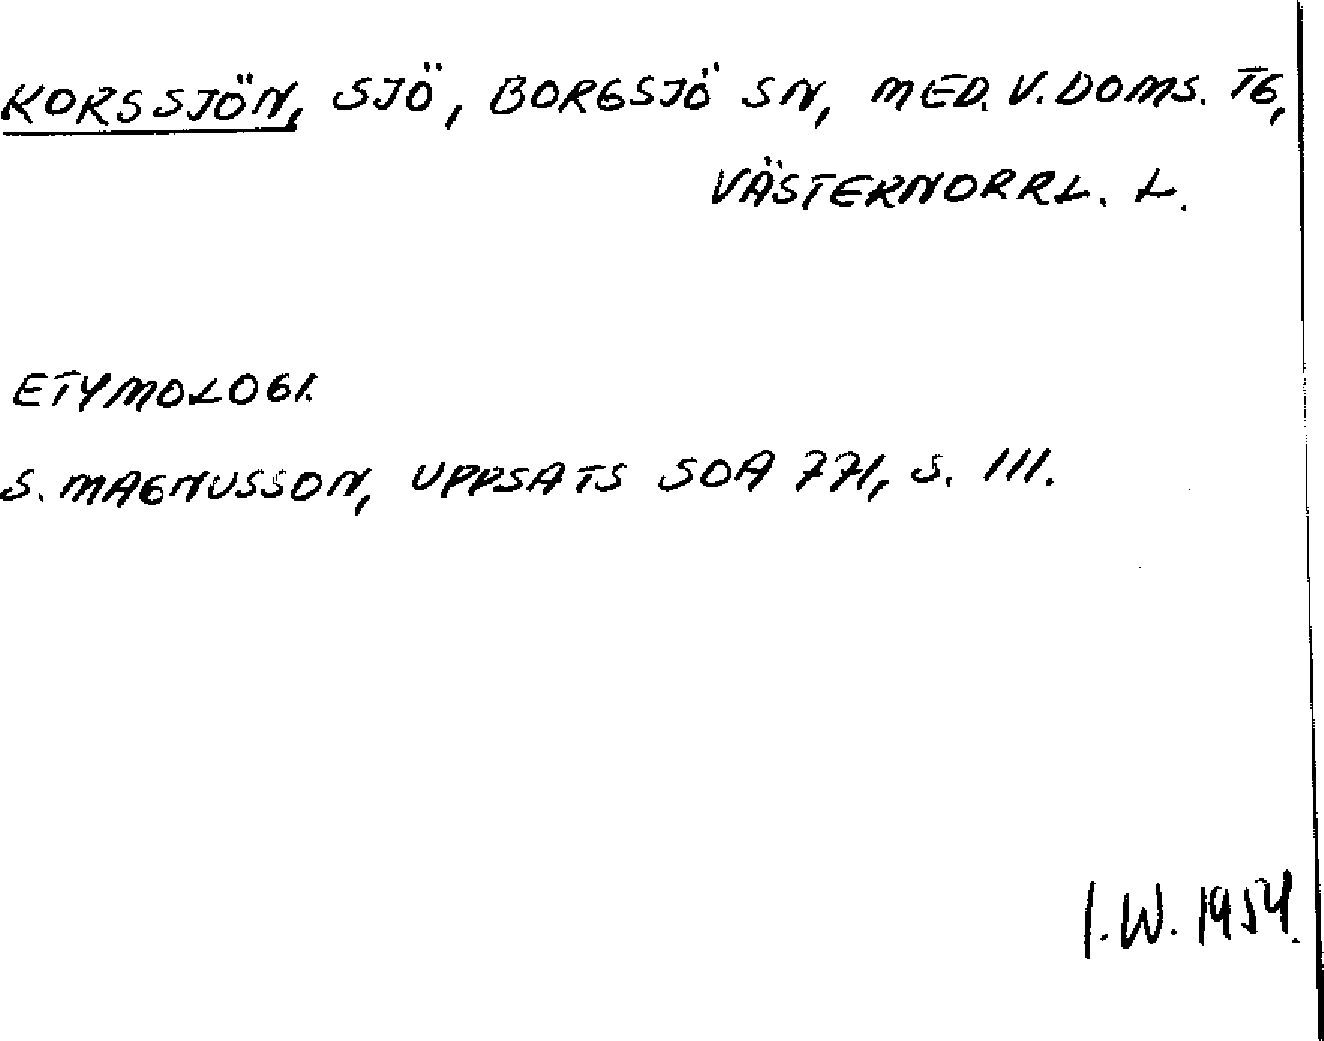 KORSSJÖN, SJÖ, BORGSJÖ SN, MED. V. DOMS. TG,
VÄSTERNORRL. L.
ETYMOLOGI.
S. MAGNUSSON, UPPSATS SOA 771, S. 111.
I.W. 1954.